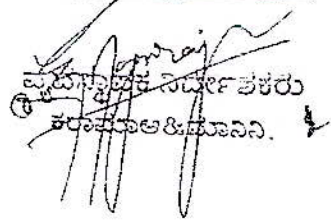 ವ್ಯವಸ್ಥಾಪಕ ನಿರ್ದೇಶಕರು
ಕರಾಮಾಅಹಿಮಾನಿನಿ.